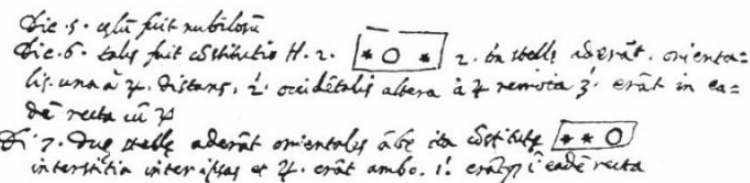 Die .5. cęlũ fuit nubilosũ
Die .6. talis fuit cõstitutio H. 2. * O * 2. tñ stellę aderãt. orienta=
lis. una à ♃. distans. 2'. occidẽtalis altera à ♃ remota 3'. erãt in ea=
dẽ recta cũ ♃
Di 7. duę stellę aderãt orientales ãbę ita cõstitutę * * O
interstitia inter ipsas et ♃. erãt ambo. 1'. ĩ eadẽ recta